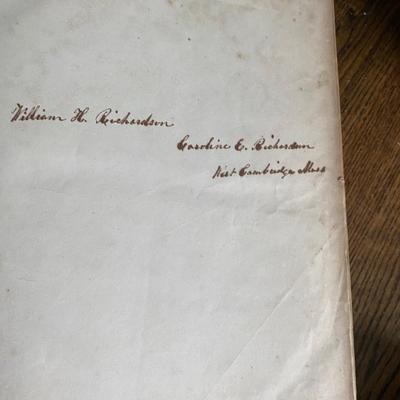 William H. Richardson
Caroline E. Richardson
West Cambridge Mass